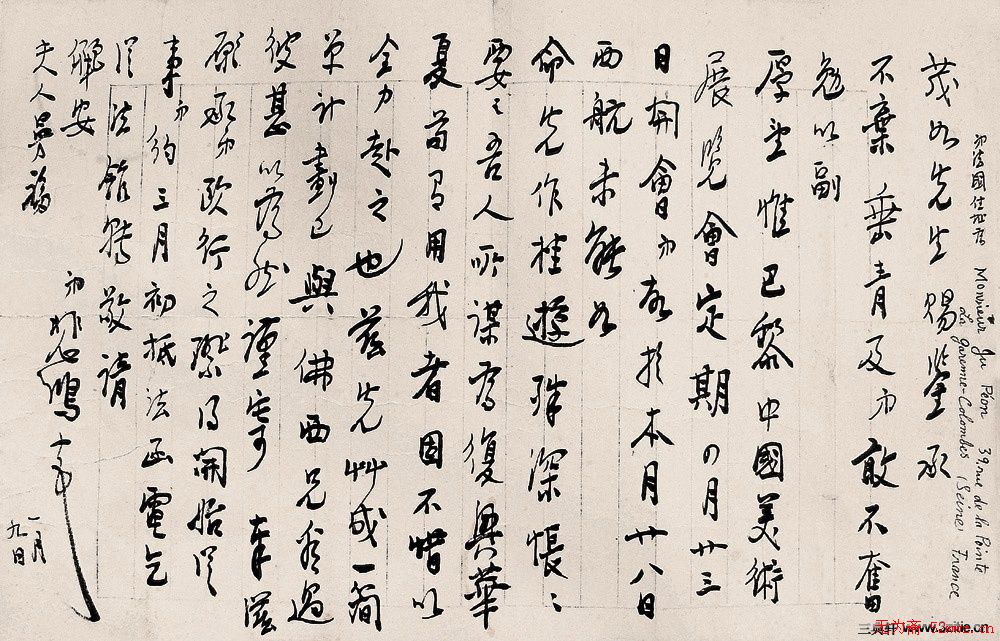 弟法國住址為 Monsieur Ju Péon 39, rue de la Pointe
La Garenne-Colombes (Seine) France
茂如先生賜鑒承
不棄垂青及弟敢不奮
勉以副
厚望惟巴黎中國美術
展覽會定期四月廿三
日開會弟於本月廿八日
西航未能如
命先作桂遊殊深悵〻
要之吾人所謀為復興華
夏苟有用我者固不惜以
全力赴之也茲先艸成一簡
單計劃已與佛西兄看過
彼甚以為然謹寄奉
願弟歐行之際得開始從
事弟約三月初抵法函電乞
從法館轉敬請
儷安
夫人曼福
弟悲鴻
一月
九日